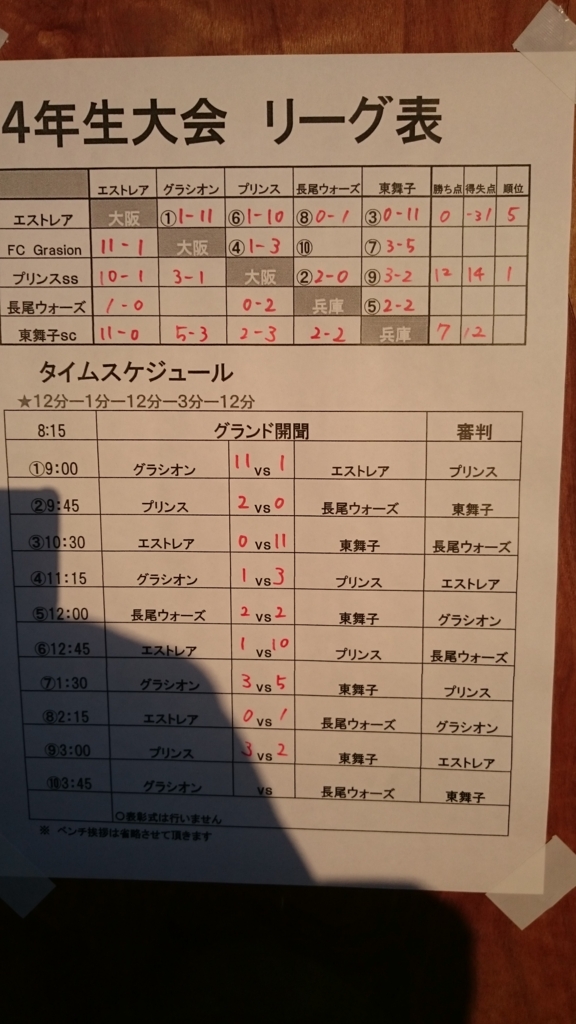 4年生大会 リーグ表
エストレア グラシオン プリンス 長尾ウォーズ 東舞子 勝ち点 得失点 順位
エストレア 大阪 ①1-11 ⑥1-10 ⑧0-1 ③0-11 0 -31 5
FC Grasion 11-1 大阪 ④1-3 ⑩ ⑦3-5
プリンスss 10-1 3-1 大阪 ②2-0 ⑨3-2 12 14 1
長尾ウォーズ 1-0 0-2 兵庫 ⑤2-2
東舞子sc 11-0 5-3 2-3 2-2 兵庫 7 12
タイムスケジュール
★12分ー1分ー12分ー3分ー12分
8:15 グランド開聞 審判
①9:00 グラシオン 11 vs 1 エストレア プリンス
②9:45 プリンス 2 vs 0 長尾ウォーズ 東舞子
③10:30 エストレア 0 vs 11 東舞子 長尾ウォーズ
④11:15 グラシオン 1 vs 3 プリンス エストレア
⑤12:00 長尾ウォーズ 2 vs 2 東舞子 グラシオン
⑥12:45 エストレア 1 vs 10 プリンス 長尾ウォーズ
⑦1:30 グラシオン 3 vs 5 東舞子 プリンス
⑧2:15 エストレア 0 vs 1 長尾ウォーズ グラシオン
⑨3:00 プリンス 3 vs 2 東舞子 エストレア
⑩3:45 グラシオン vs 長尾ウォーズ 東舞子
○表彰式は行いません
※ ベンチ挨拶は省略させて頂きます